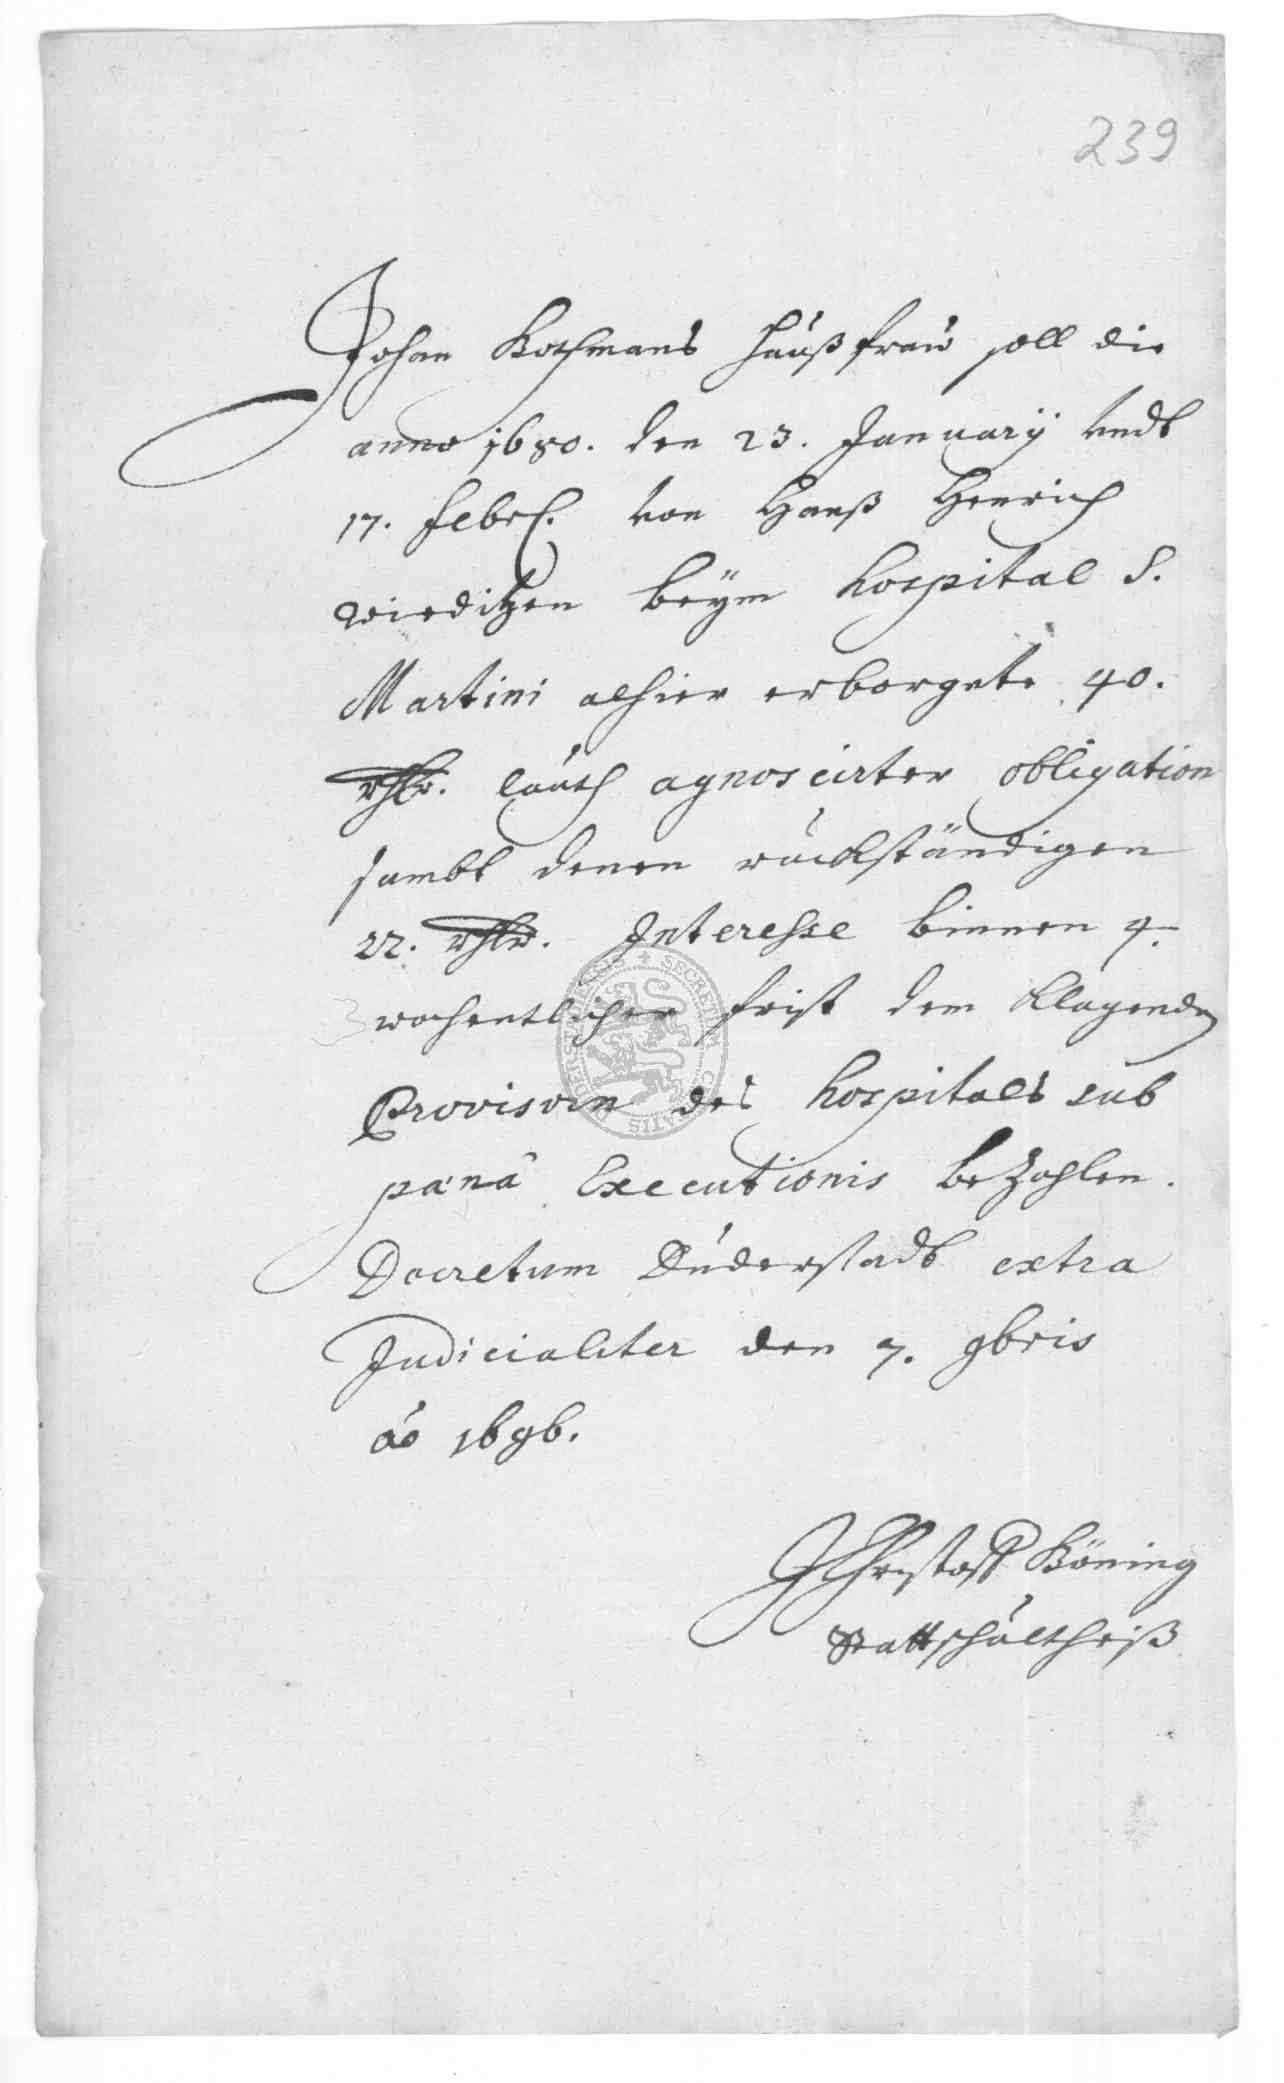 239
Johan Kochmans haußfraw soll die
anno 1680. den 23. January vndt
17. Febr. von Hanß Henrich
wieditzen beÿm hospital S.
Martini alhier erborgete 40.
rthlr. lauth agnoscirter obligation
sambt denen rückständigen
22. rthlr. Interesse binnen 4.
wochentlicher frist dem klagenden
Provisorn des hospitals sub
pœnâ Executionis bezahlen.
Decretum Duderstadt extra
Judicialiter den 7. 9bris
ao 1696.
Christoff Köning
Stattschultheiß